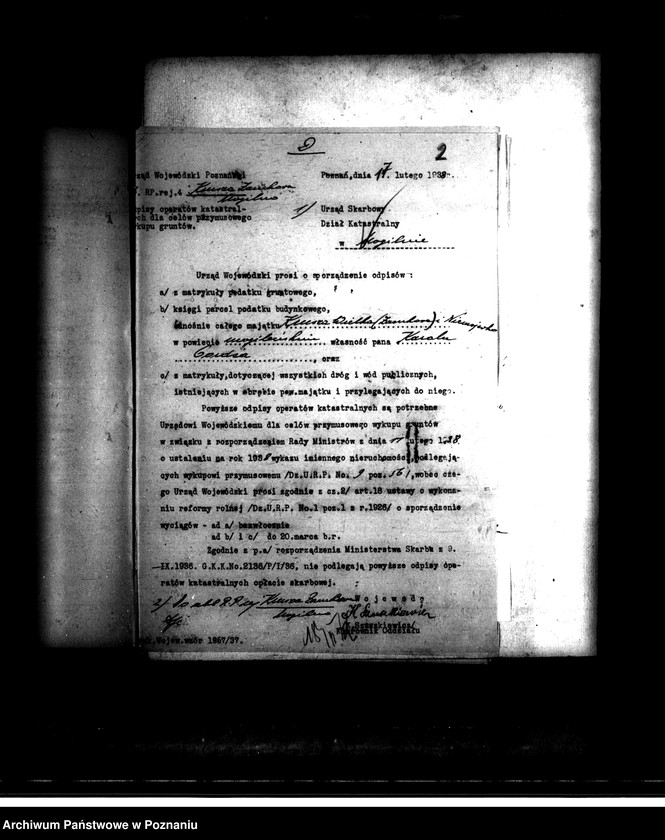 2
rząd Wojewódzki Poznański
Poznań, dnia 17 lutego 1938r.
RP.rej.4
Mogilno
pisy operatów katastral-
ch dla celów przymusowego
kupu gruntów.
1/ Urząd Skarbowy
Dział Katastralny
w Mogilnie
Urząd Wojewódzki prosi o sporządzenie odpisów :
a/ z matrykuły podatku gruntowego,
b/ księgi parcel podatku budynkowego,
odnośnie całego majątku
w powiecie mogileńskim własność pana Karola
, oraz
c/ z matrykuły,dotyczącej wszystkich dróg i wód publicznych,
istniejących w obrębie pow.majątku i przylegających do niego.
Powyższe odpisy operatów katastralnych są potrzebne
Urzędowi Wojewódzkiemu dla celów przymusowego wykupu gruntów
w związku z rozporządzeniem Rady Ministrów z dnia lutego 1938.
o ustaleniu na rok 1938 wykazu imiennego nieruchomości,podlegają-
cych wykupowi przymusowemu /Dz.U.R.P. No. 9 poz. 561/,wobec cze-
go Urząd Wojewódzki prosi zgodnie z cz.2/ art.18 ustawy o wykona-
niu reformy rolnej /Dz.U.R.P. No.1 poz.1 z r.1926/ o sporządzenie
wyciągów - ad a/ bezwłocznie
ad b/ i c/ do 20.marca b.r.
Zgodnie z p.a/ rozporządzenia Ministerstwa Skarbu z 9.
IX.1936. G.K.K.No.2136/P/I/36, nie podlegają powyższe odpisy ope-
ratów katastralnych opłacie skarbowej.
Wojewoda
2/
Mogilno
Kierownik Oddziału
Wojew.wzór 1957/37.
Archiwum Państwowe w Poznaniu